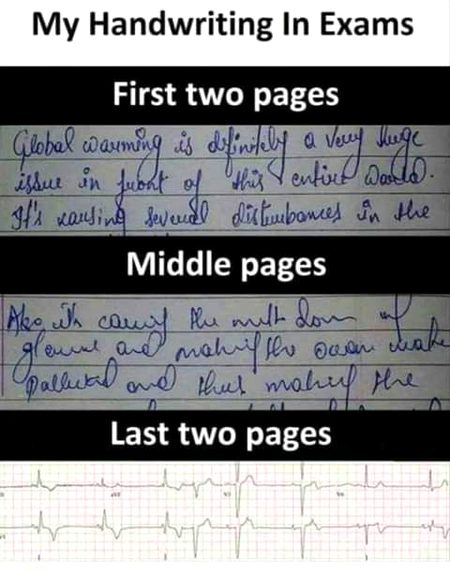 My Handwriting In Exams
First two pages
Global warming is definitely a very huge
issue in front of this entire world.
It's causing several disturbances in the
Middle pages
Also causing the melt down of
and making the ocean water
Polluted and thus making the
Last two pages